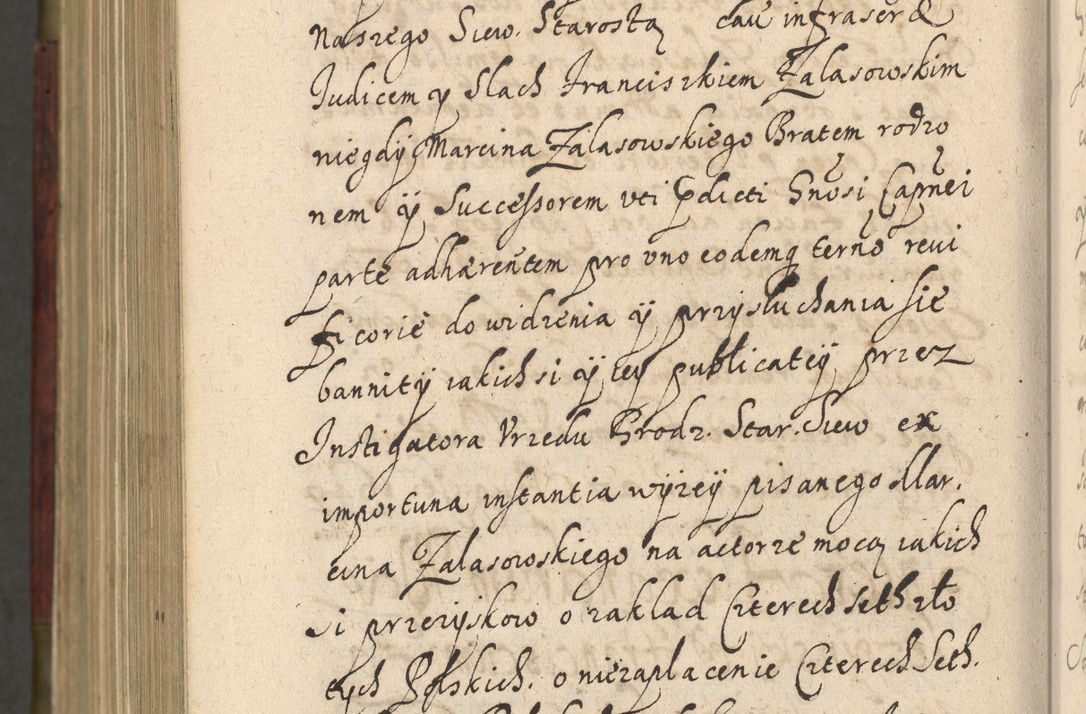 naszego Siew. Starostą cau infraser &
Iudicem y Slach Franciszkiem Zalasowskim
niegdÿ Marcina Zalasowskiego Bratem rodzo
nem ÿ Successorem uti pdicti Gnosi Capnei
parte adhærentem pro uno eodemq terno revi
ficorie do widzenia ÿ przysłuchania sie
bannitÿ iakichsi ÿ tey publicatÿ przez
Instigatora Vrzedu Grodz. Star. Siew ex
importuna instantia wÿzeÿ pisanego Mar.
cina Zalasowskiego na actorze mocą iakich
si przezÿskow o zaklad Czterech seth zło
tych Polskich. o niezaplacenie Czterech Seth.